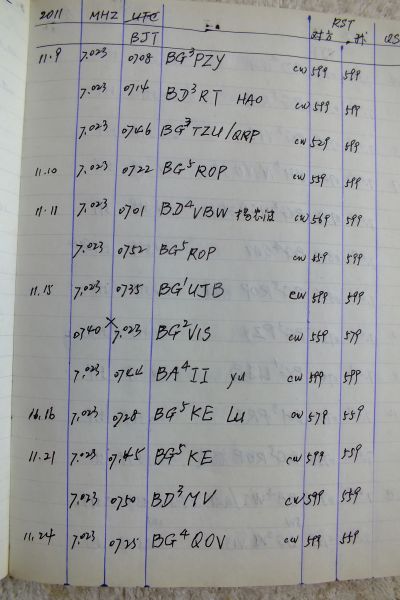 2011 MHZ UTC RST
BJT 对方 我 QS
11.9 7.023 0708 BG3PZY CW 599 599
7.023 0714 BD3RT HAO CW 599 599
7.023 0746 BG3TZU/QRP CW 529 599
11.10 7.023 0722 BG5ROP CW 559 599
11.11 7.023 0701 BD4VBW CW 569 599
7.023 0752 BG5ROP CW 559 599
11.15 7.023 0735 BG1UJB CW 599 599
0740 × 7.023 BG2VIS CW 559 579
7.023 0744 BA4II yu CW 599 599
7.023 0728 BG5KE Lu CW 579 559
11.21 7.023 07.45 BG5KE CW 599 559
7.023 0750 BD3MV CW 599 559
11.24 7.023 0725 BG4QOV CW 599 599